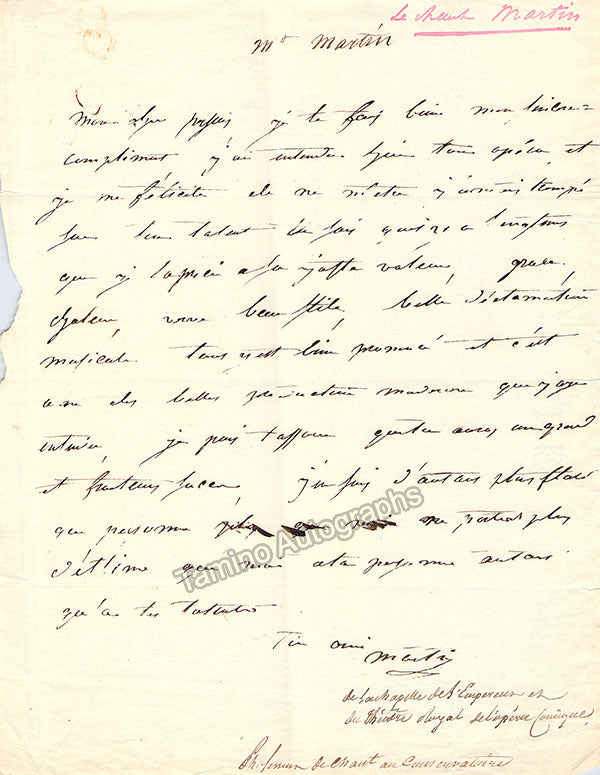 Le chant Martin
Mr Martin
je te fais bien mon sincere
compliment j'ai entendu hier ton opéra et
je me félicite de ne m'être jamais trompé
sur ton talent
que j'apprécie a sa juste valeur, grace,
chaleur, verve beau stile, belle déclamation
musicale tous y est bien prononcé et c'est
une des belles production moderne que j'aye
entendu, je puis t'assurer que tu auras un grand
et fructueux succes, j'en suis d'autant plus flaté
que personne ne porte plus
d'estime que moi a ta personne autant
qu'a tes talents
Ton ami
Martin
de la chapelle de l'Empereur et
du théâtre Royal de l'opéra Comique,
Professeur de chant au Conservatoire
Tamino Autographs